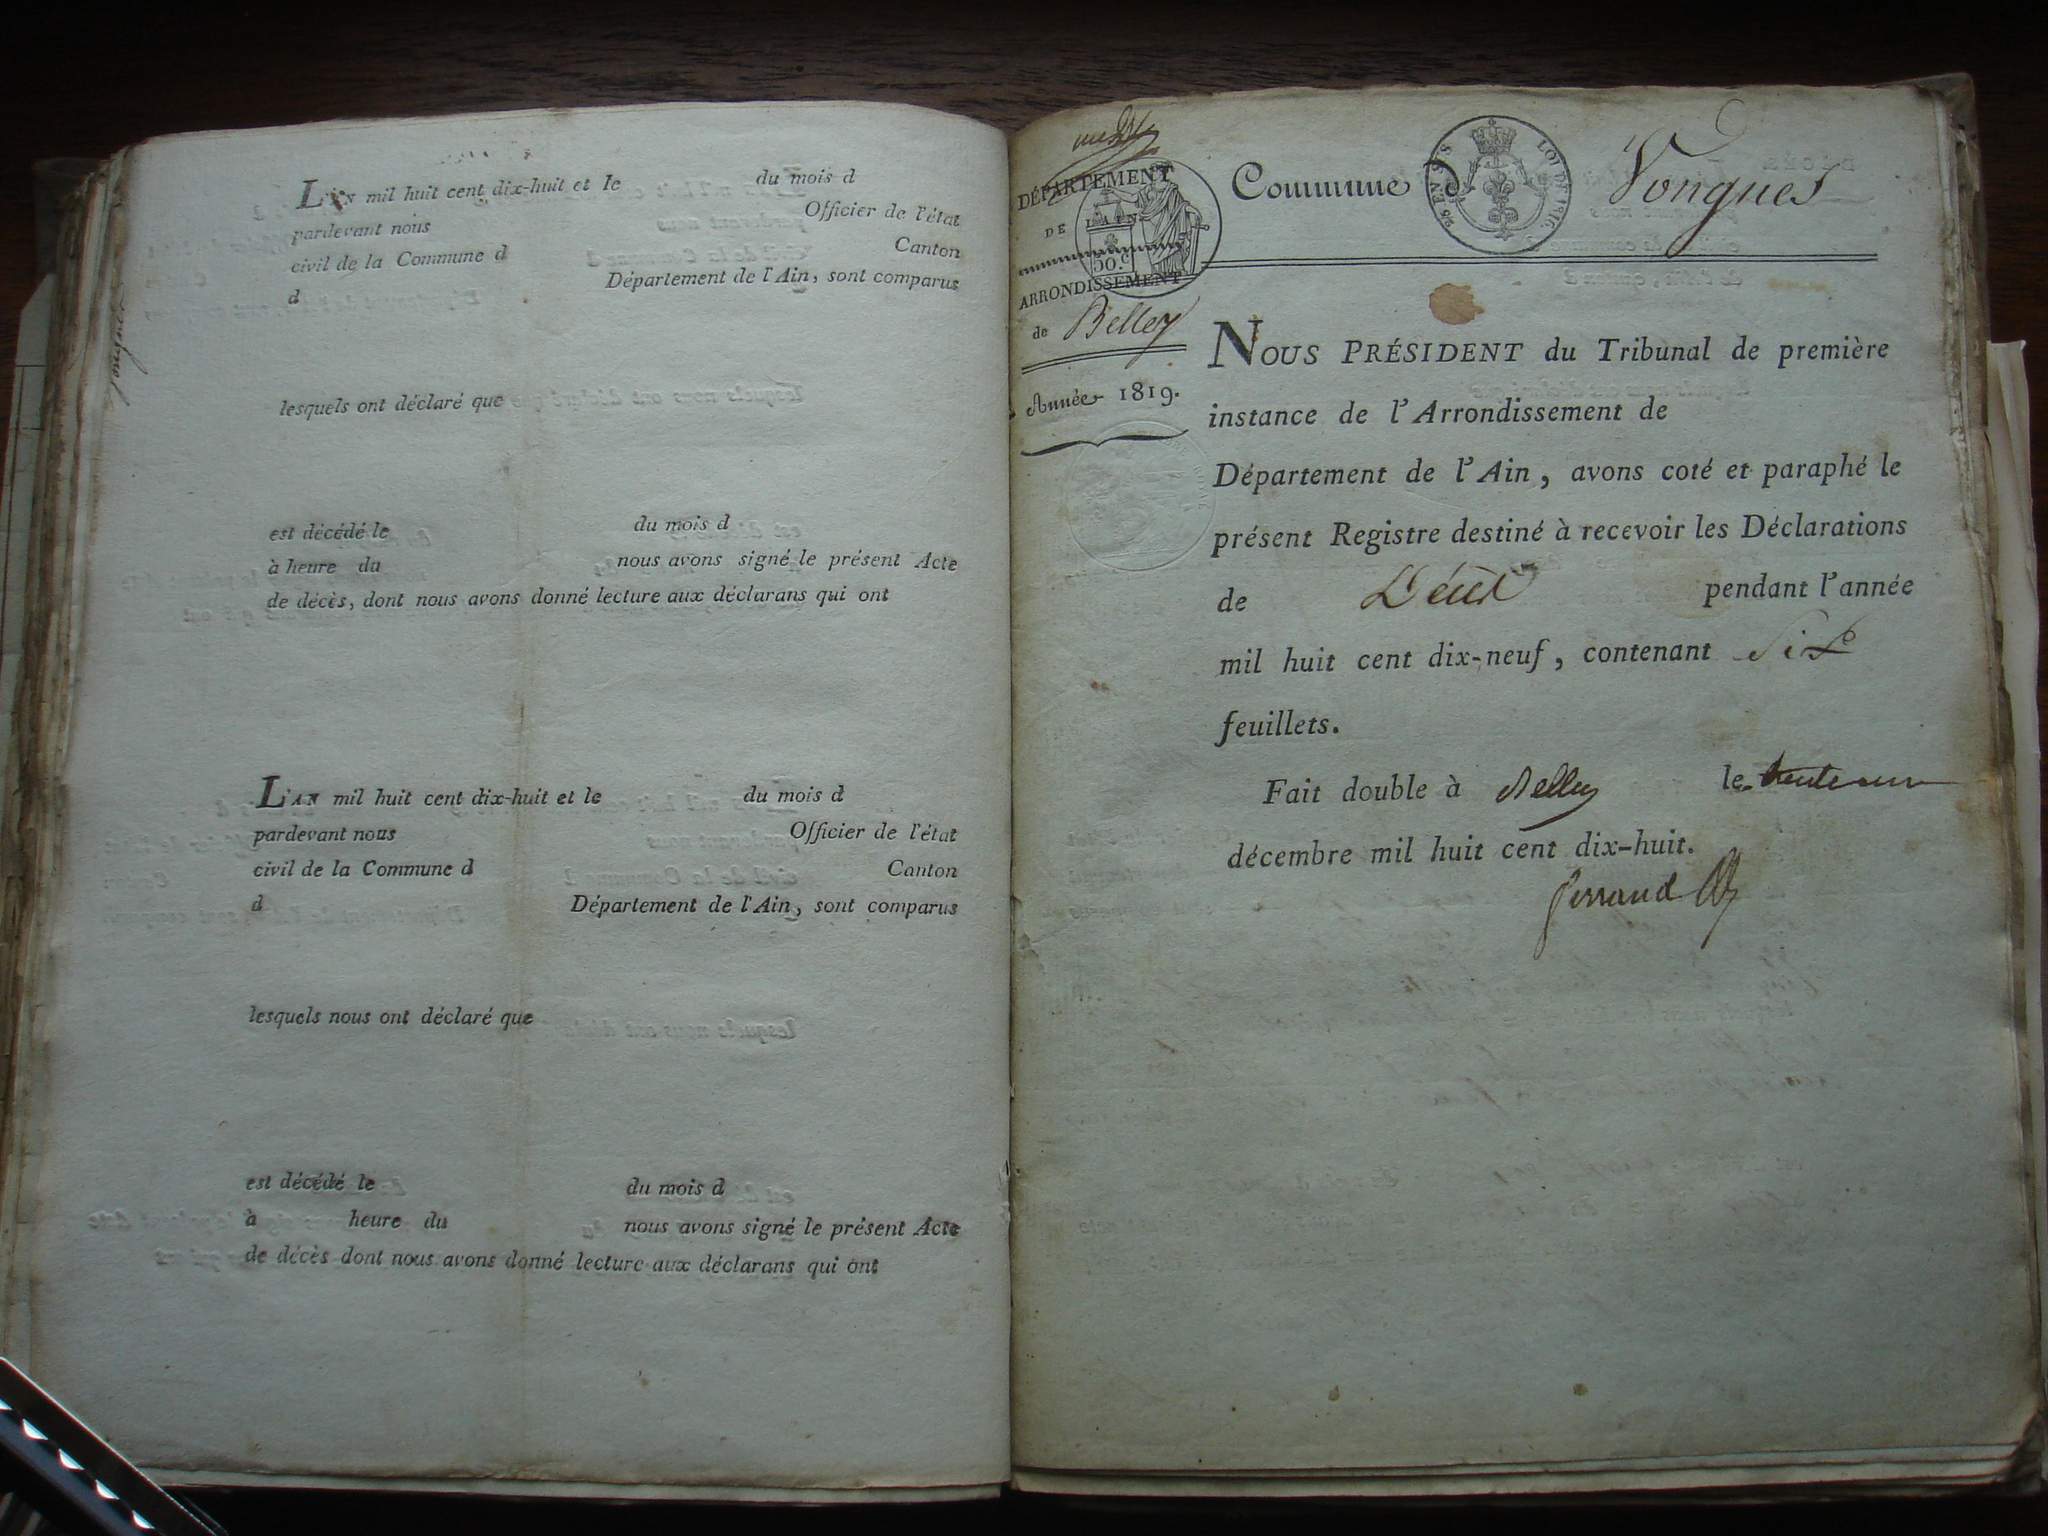 L'AN mil huit cent dix-huit et le du mois d
pardevant nous Officier de l'état
civil de la Commune d Canton
d Département de l'Ain, sont comparus
lesquels ont déclaré que
est décédé le du mois d
à heure du nous avons signé le présent Acte
de décès, dont nous avons donné lecture aux déclarans qui ont
L'AN mil huit cent dix-huit et le du mois d
pardevant nous Officier de l'état
civil de la Commune d Canton
d Département de l'Ain, sont comparus
lesquels nous ont déclaré que
est décédé le du mois d
à heure du nous avons signé le présent Acte
de décès dont nous avons donné lecture aux déclarans qui ont
DÉPARTEMENT
DE L'AIN
50.c
ARRONDISSEMENT
de Belley
Année 1819.
Commune d Vongnes
LOI DE 1816
NOUS PRÉSIDENT du Tribunal de première
instance de l'Arrondissement de
Département de l'Ain, avons coté et paraphé le
présent Registre destiné à recevoir les Déclarations
de Décès pendant l'année
mil huit cent dix-neuf, contenant Six
feuillets.
Fait double à Belley le trente un
décembre mil huit cent dix-huit.